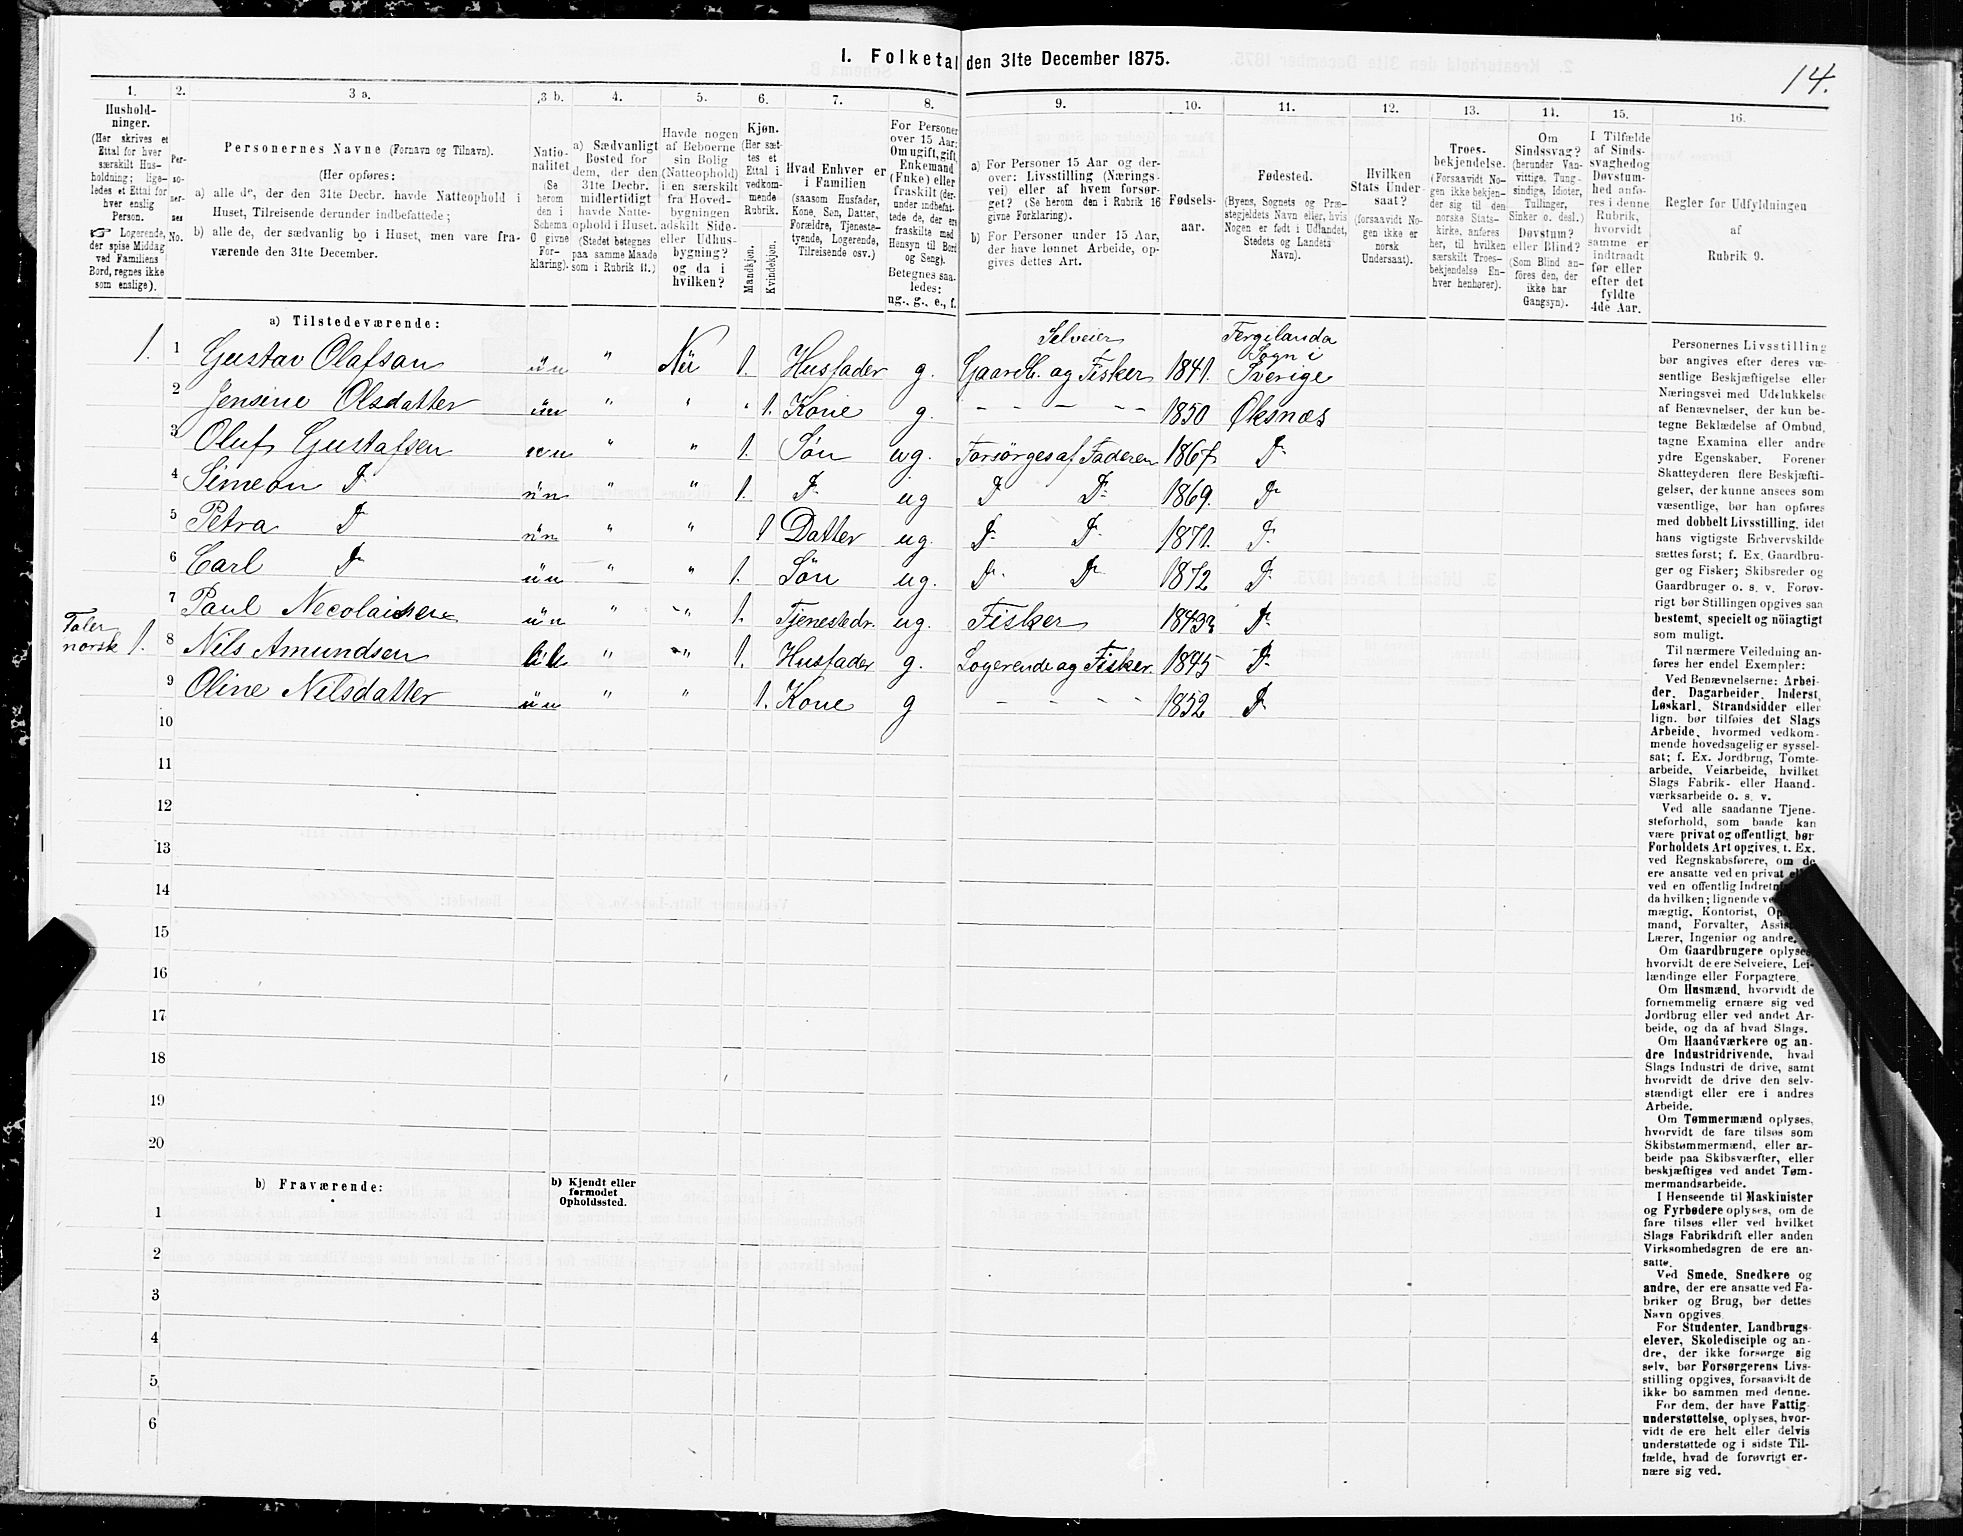 I. Folketal den 31te December 1875.
14.
1. 2. 3 a. 3 b. 4. 5. 6. 7. 8. 9. 10. 11. 12. 13. 14. 15. 16.
Hushold-
ninger.
(Her skrives et
Ettal for hver
særskilt Hus-
holdning; lige-
ledes et Ettal for
hver enslig
Person.
☞ Logerende,
der spise Middag
ved Familiens
Bord, regnes ikke
som enslige).
Per-
so-
ner-
ses
No.
Personernes Navne (Fornavn og Tilnavn).
(Her opføres:
a) alle de, der den 31te Decbr. havde Natteophold i
Huset, Tilreisende derunder indbefattede;
b) alle de, der sædvanlig bo i Huset, men vare fra-
værende den 31te December.
Natio-
nalitet
(Se
herom
den i
Schema
O givne
For-
klaring).
a) Sædvanligt
Bosted for
dem, der den
31te Decbr.
midlertidigt
havde Natte-
ophold i Huset.
(Stedet betegnes
paa samme Maade
som i Rubrik 11.)
Havde nogen
af Beboerne
sin Bolig
(Natteophold)
i en særskilt
fra Hoved-
bygningen
adskilt Side-
eller Udhus-
bygning?
og da i
hvilken?
Kjøn.
(Her sæt-
tes et
Ettal i
vedkom-
mende
Rubrik.
Mandkjøn.
Kvindekjøn.
Hvad Enhver er
i Familien
(saasom Husfader,
Kone, Søn, Datter,
Forældre, Tjeneste-
tyende, Logerende,
Tilreisende osv.)
For Personer
over 15 Aar:
Om ugift, gift,
Enkemand
(Enke) eller
fraskilt (der-
under indbefat-
tede de, der ere
fraskilte med
Hensyn til Bord
og Seng).
Betegnes saa-
ledes:
ug., g., e., f.
a) For Personer 15 Aar og der-
over: Livsstilling (Nærings-
vei) eller af hvem forsør-
get? (Se herom den i Rubrik 16
givne Forklaring).
b) For Personer under 15 Aar,
der have lønnet Arbeide, op-
gives dettes Art.
Fødsels-
aar.
Fødested.
(Byens, Sognets og Præ-
stegjeldets Navn eller, hvis
Nogen er født i Udlandet,
Stedets og Landets
Navn).
Hvilken
Stats Under-
saat?
(forsaavidt No-
gen ikke er
norsk
Undersaat).
Troes-
bekjendelse.
(Forsaavidt No-
gen ikke bekjen-
der sig til den
norske Stats-
kirke, anføres
her, til hvilken
særskilt Troes-
bekjendelse En-
hver henhører).
Om
Sindssvag?
(herunder Van-
vittige, Tung-
sindige, Idioter,
Tullinger,
Sinker o. desl.)
Døvstum?
eller Blind?
(Som Blind an-
føres den, der
ikke har
Gangsyn).
I Tilfælde
af Sinds-
svaghed og
Døvstum-
hed anfø-
res i denne
Rubrik,
hvorvidt
samme er
indtraadt
før eller
efter det
fyldte
4de Aar.
Regler for Udfyldningen
af
Rubrik 9.
a) Tilstedeværende:
1. 1 Gustav Olafsan ün " Nei 1. Husfader g. Selveier Gaardb. og Fisker 1841. Fergilanda Sogn i Sverige
2 Jensine Olsdatter ün " " 1. Kone g. — — — — 1850 Øksnæs
3 Oluf Gustafsen un " " 1. Søn ug. Forsørges af Faderen 1867 Do
4 Simeon Do ün " " 1. Do ug Do Do 1869. Do
5 Petra Do ün " " 1 Datter ug. Do Do 1871. Do
6 Carl Do ün " " 1. Søn ug. Do Do 1872 Do
7 Paul Necolaisen ün " " 1. Tjenestedr. ug. Fisker 1843 Do
Taler norsk 1. 8 Nils Amundsen " " 1. Husfader g. Logerende og Fisker. 1845 Do
9 Oline Nilsdatter ün " " 1. Kone g — — — — 1852 Do
10
11
12
13
14
15
16
17
18
19
20
b) Fraværende:
b) Kjendt eller
formodet
Opholdssted.
1
2
3
4
5
6
Personernes Livsstilling
bør angives efter deres væ-
sentlige Beskjæftigelse eller
Næringsvei med Udelukkelse
af Benævnelser, der kun be-
tegne Beklædelse af Ombud,
tagne Examina eller andre
ydre Egenskaber. Forener
Skatteyderen flere Beskjæfti-
gelser, der kunne ansees som
væsentlige, bør han opføres
med dobbelt Livsstilling, idet
hans vigtigste Erhvervskilde
sættes først; f. Ex. Gaardbru-
ger og Fisker; Skibsreder og
Gaardbruger o. s. v. Forøv-
rigt bør Stillingen opgives saa
bestemt, specielt og nøiagtigt
som muligt.
Til nærmere Veiledning an-
føres her endel Exempler:
Ved Benævnelserne: Arbei-
der, Dagarbeider, Inderst,
Løskarl, Strandsidder eller
lign. bør tilføies det Slags
Arbeide, hvormed vedkom-
mende hovedsagelig er syssel-
sat; f. Ex. Jordbrug, Tomte-
arbeide, Veiarbeide, hvilket
Slags Fabrik- eller Haand-
værksarbeide o. s. v.
Ved alle saadanne Tjene-
steforhold, som baade kan
være privat og offentligt, bør
Forholdets Art opgives, t. Ex.
ved Regnskabsførere, om de
ere ansatte ved en privat
ved en offentlig
da hvilken; lignende
mægtig, Kontorist,
mand, Forvalter,
Lærer, Ingeniør og andre.
Om Gaardbrugere oplyses,
hvorvidt de ere Selveiere, Lei-
lændinge eller Forpagtere.
Om Husmænd, hvorvidt de
fornemmelig ernære sig ved
Jordbrug eller ved andet Ar-
beide, og da af hvad Slags.
Om Haandværkere og an-
dre Industridrivende, hvad
Slags Industri de drive, samt
hvorvidt de drive den selv-
stændigt eller ere i andres
Arbeide.
Om Tømmermænd oplyses,
hvorvidt de fare tilsøs som
Skibstømmermænd, eller ar-
beide paa Skibsværfter, eller
beskjæftiges ved andet Tøm-
mermandsarbeide.
I Henseende til Maskinister
og Fyrbødere oplyses, om de
fare tilsøs eller ved hvilket
Slags Fabrikdrift eller anden
Virksomhedsgren de ere an-
satte.
Ved Smede, Snedkere og
andre, der ere ansatte ved Fa-
briker og Brug, bør dettes
Navn opgives.
For Studenter, Landbrugs-
elever, Skoledisciple og an-
dre, der ikke forsørge sig
selv, bør Forsørgerens Livs-
stilling opgives, forsaavidt de
ikke bo sammen med denne.
For dem, der have Fattig-
understøttelse, oplyses, hvor-
vidt de ere helt eller delvis
understøttede og i sidste Til-
fælde, hvad de forøvrigt er-
nære sig ved.